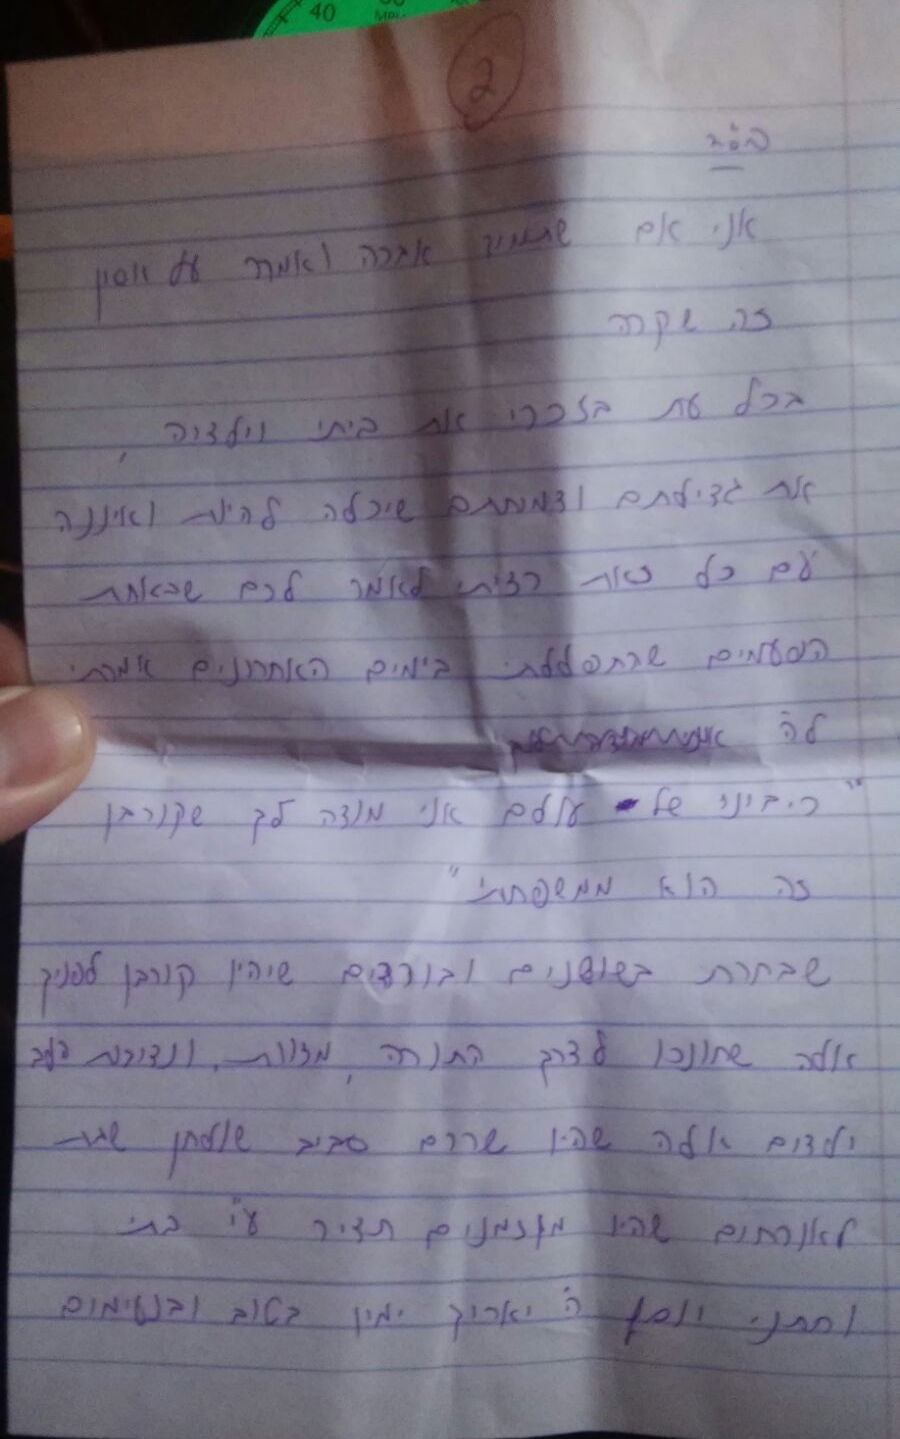 40
MPH
2
בס"ד
אני אם אבלה ואומר על אסון
זה שקרה
בכל עת בזכרי את ביתי וילדיה,
את גדילתם וצמיחתם שיכלה להיות ואיננה
עם כל זאת רציתי לאמר לכם שבאחת
הפעמים שהתפללתי בימים האחרונים אמרתי
לה'
"ריבוני של עולם אני מודה לך שקורבן
זה הוא ממשפחתי"
שבחרת בשושנים ובורדים שיהיו קורבן לפניך
אלה שחונכו לדרך התורה, מצוות, ונדיבות הלב
ילדים אלה שהיו שרים סביב שולחן שבת
לאורחים שהיו מוזמנים תדיר ע"י בתי
וחתני יוסף ה' יאריך ימיו בטוב ובנעימים